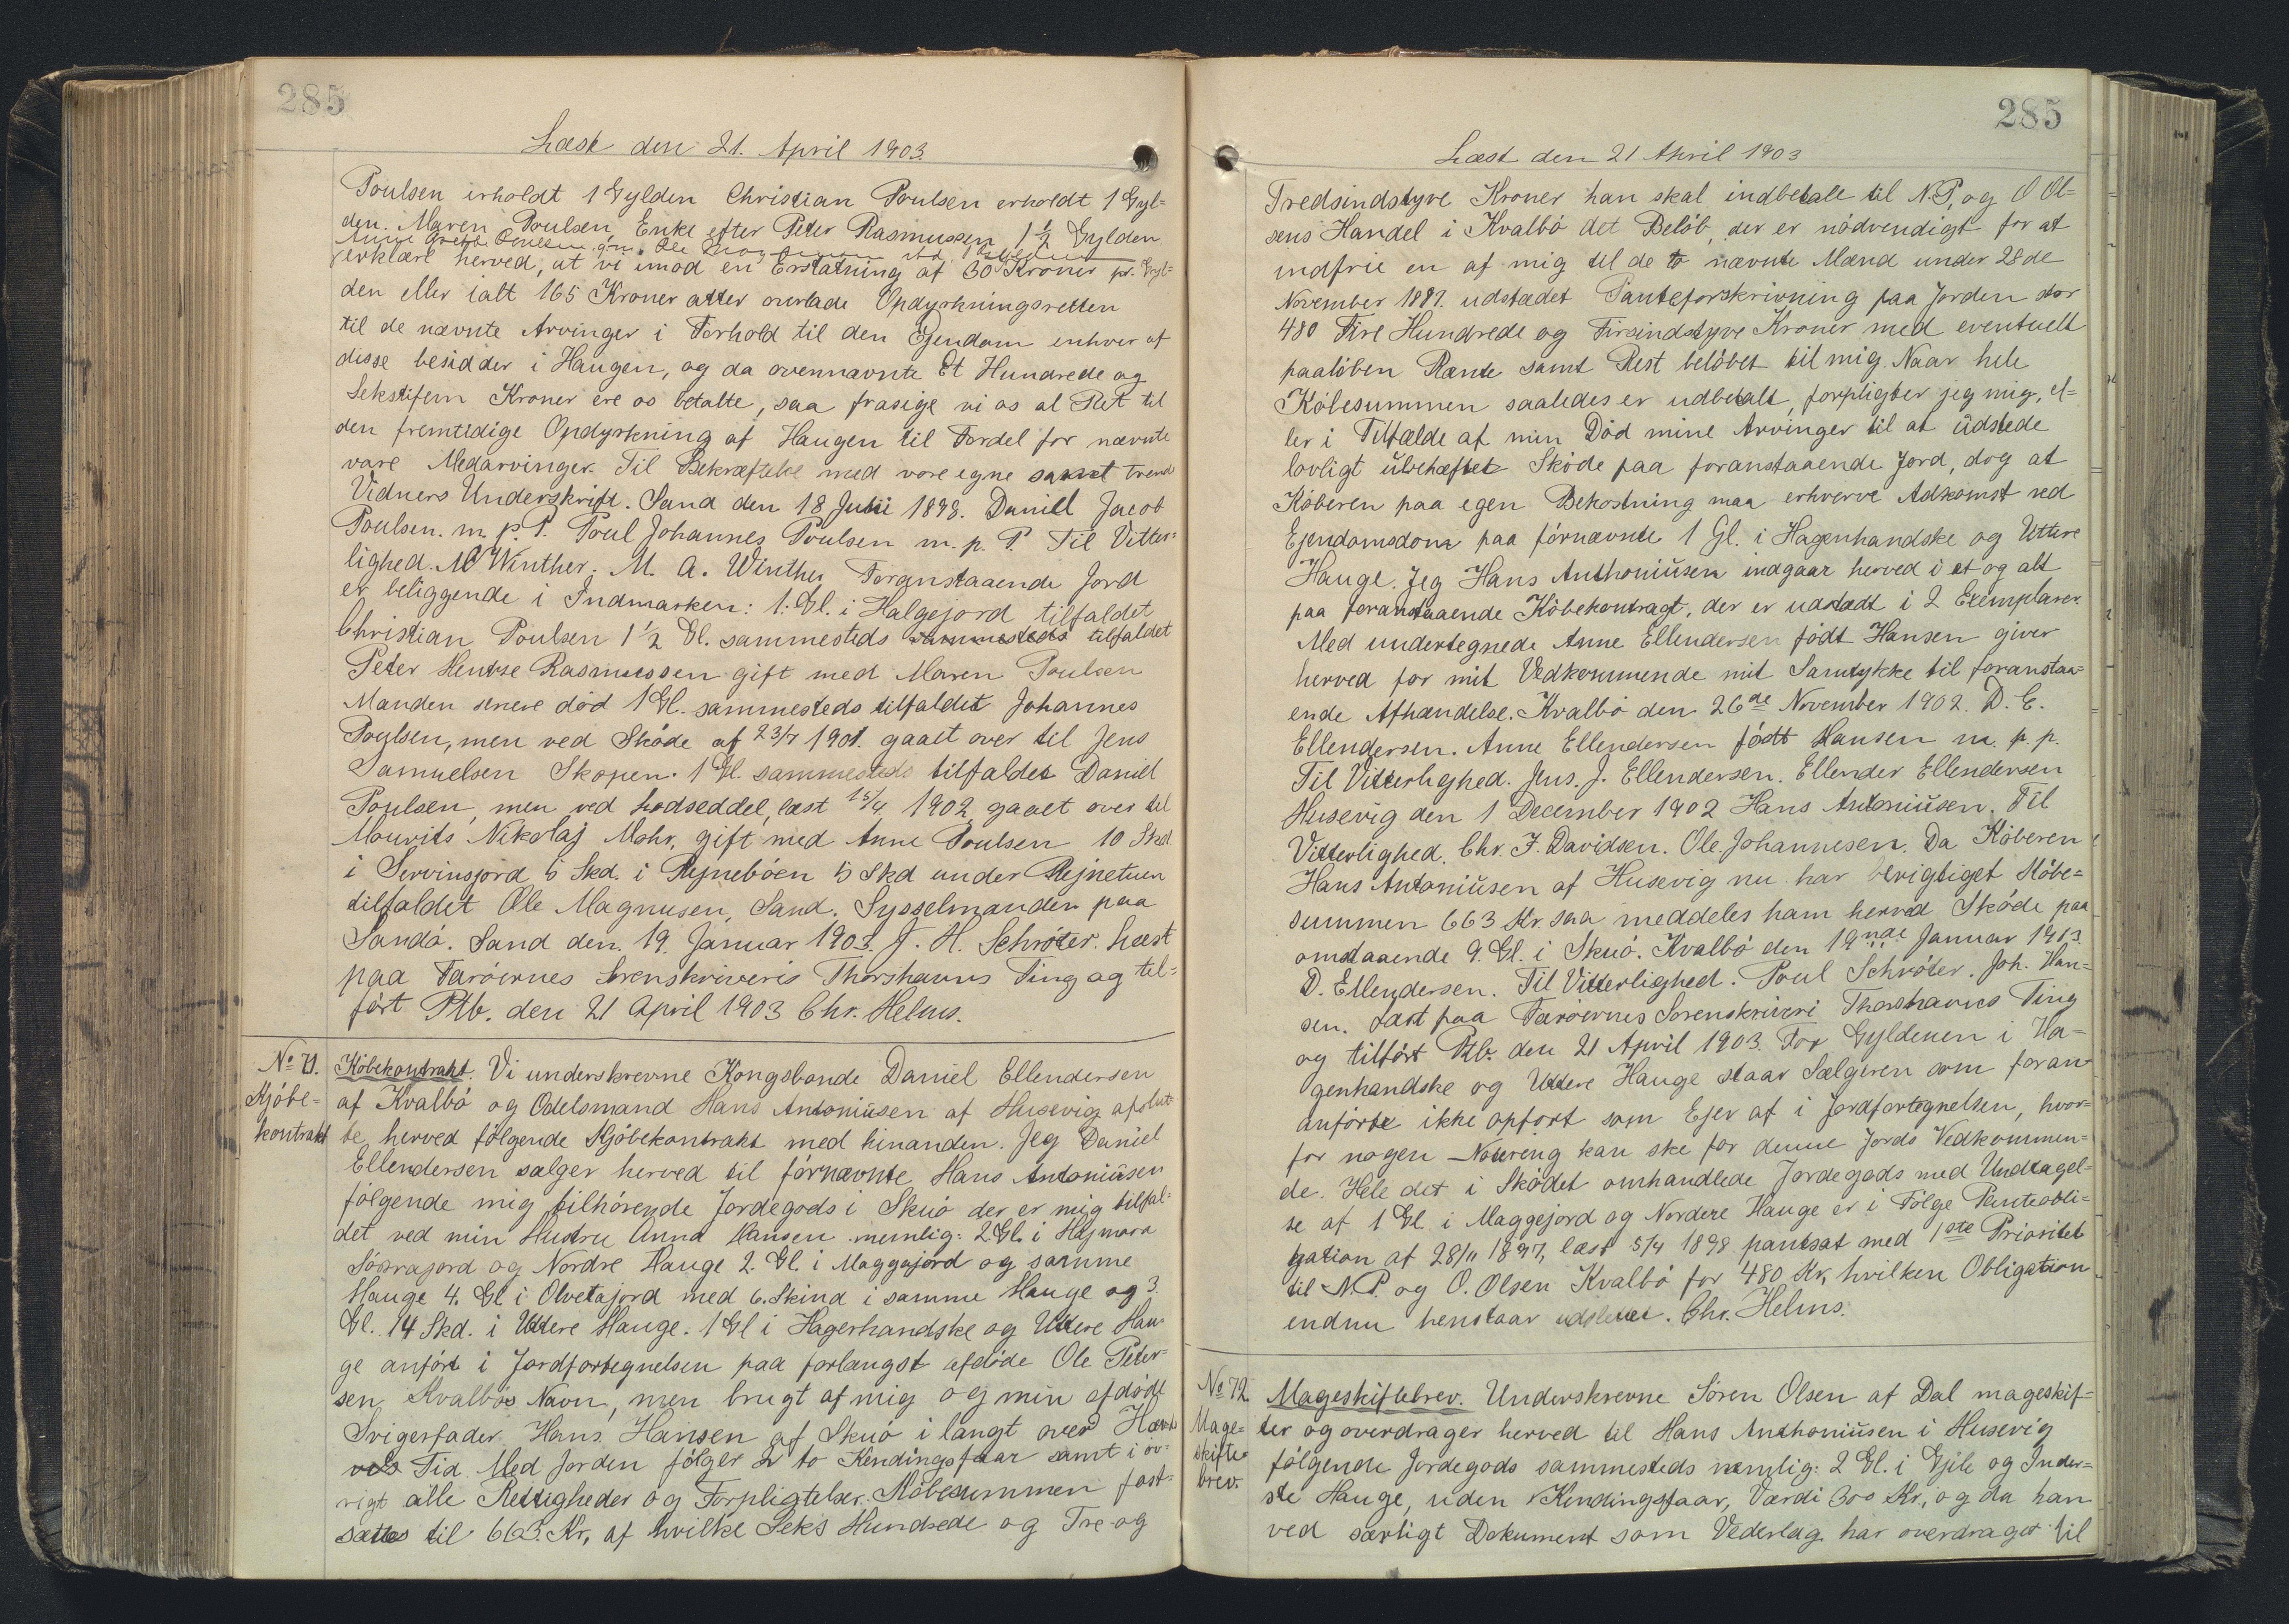 285
Læst den 21. April 1903.
Poulsen erholdt 1 Gylden Christian Poulsen erholdt 1 Gyl=
den. Maren Poulsen, Enke efter Peter Rasmussen 1 1/2 Gylden
erklære herved, at vi imod en Erstatning af 30 Kroner pr. Gyl=
den eller ialt 165 Kroner atter overlade Opdyrkningsretten
til de nævnte Arvinger i Forhold til den Ejendom enhver af
disse besidder i Haugen, og da ovennævnte Et Hundrede og
Sekstifem Kroner ere os betalte, saa frasige vi os al Ret til
den fremtidige Opdyrkning af Haugen til Fordel for nævnte
vare Medarvinger. Til Bekræftelse med vore egne samt trende
Vidners Underskrift. Sand den 18 Juni 1898. Daniel Jacob
Poulsen. m. p. P. Poul Johannes Poulsen m. p. P. Til Vitter=
lighed. M Winther. M. A. Winther Foranstaaende Jord
er beliggende i Indmarken: 1. Gl. i Halgejord tilfaldet
Christian Poulsen 1 1/2 Gl. sammesteds sammesteds tilfaldet
Peter Hentze Rasmussen gift med Maren Poulsen
Manden senere død 1 Gl. sammesteds tilfaldet Johannes
Poulsen, men ved Skøde af 23/7 1901. gaaet over til Jens
Samuelsen Skopen. 1 Gl. sammesteds tilfaldet Daniel
Poulsen, men ved Lodseddel, læst 15/4 1902, gaaet over til
Mourits Nikolaj Mohr, gift med Anne Poulsen 10 Skd
i Servinsjord 5 Skd. i Rejnebøen 5 Skd under Rejnetuen
tilfaldet Ole Magnusen, Sand. Sysselmanden paa
Sandø. Sand den 19. Januar 1903. J. H. Schrøter. Læst
paa Færøernes Sorenskriveris Thorshavns Ting og til=
ført Ptb. den 21 April 1903 Chr. Helms.
No 71.
Kjøbe=
kontrakt
Købekontrakt. Vi underskrevne Kongsbonde Daniel Ellendersen
af Kvalbø og Odelsmand Hans Antoniüsen af Husevig afslut
te herved følgende Kjøbekontrakt med hinanden. Jeg Daniel
Ellendersen sælger herved til førnævnte Hans Antoniüsen
følgende mig tilhørende Jordegods i Skuø der er mig tilfal=
det ved min Hustru Anna Hansen nemlig: 2. Gl. i Højmora
Søvrajord og Nordre Hauge 2. Gl. i Maggajord og samme
Hauge 4. Gl i Olvetajord med 6. Skind i samme Hauge og 3.
Gl. 14 Skd. i Uttere Hauge. 1 Gl i Hagerhandske og Uttere Hau=
ge anført i Jordfortegnelsen paa forlængst afdøde Ole Peter=
sen, Kvalbøs Navn, men brugt af mig og min afdøde
Svigerfader Hans Hansen af Skuø i langt over Hævds
Tid. Med Jorden følger 2 to Kendingsfaar samt i øv=
rigt alle Rettigheder og Forpligtelser. Købesummen fast=
sættes til 663. Kr, af hvilke Seks Hundrede og Tre og
285
Læst den 21 April 1903
Tredsindstyve Kroner han skal indbetale til N.P. og O Ol=
sens Handel i Kvalbø det Beløb, der er nødvendigt for at
indfrie en af mig til de to nævnte Mænd under 28de
November 1897. udstædet Panteforskrivning paa Jorden stor
480 Fire Hundrede og Firsindstyve Kroner med eventuelt
paaløben Rente samt Rest beløbet til mig. Naar hele
Købesummen saaledes er udbetalt, forpligter jeg mig, el=
ler i Tilfælde af min Død mine Arvinger til at üdstede
lovligt übehæftet Skøde paa foranstaaende Jord, dog at
Køberen paa egen Bekostning maa erhverve Adkomst ved
Ejendomsdom paa førnævnte 1 Gl. i Hagenhandske og Uttere
Hauge. Jeg Hans Anthoniüsen indgaar herved i et og alt
paa foranstaaende Købekontragt, der er udstædt i 2 Exemplarer.
Med undertegnede Anne Ellendersen født Hansen giver
herved for mit Vedkommende mit Samtykke til foranstaa=
ende Afhændelse. Kvalbø den 26de November 1902. D. E.
Ellendersen. Anne Ellendersen født Hansen m. p. p.
Til Vitterlighed. Jens. J. Ellendersen. Ellender Ellendersen
Husevig den 1 December 1902 Hans Antoniüsen. Til
Vitterlighed. Chr. F. Davidsen. Ole Johannesen. Da Køberen
Hans Antoniüsen af Husevig nu har berigtiget Købe=
summen 663 Kr. saa meddeles ham herved Skøde paa
omstaaende 9. Gl. i Skuø. Kvalbø den 19nde Januar 1903.
D. Ellendersen. Til Vitterlighed. Poul Schrøter. Joh. Han=
sen. Læst paa Færøernes Sorenskriveri Thorshavns Ting
og tilført Ptb. den 21 April 1903. For Gyldenen i Ha=
genhandske og Uttere Hauge staar Sælgeren som foran
anførte ikke opført som Ejer af i Jordfortegnelsen, hvor=
for nogen Notering kan ske for denne Jords Vedkommen=
de. Hele det i Skødet omhandlede Jordegods med Undtagel=
se af 1 Gl. i Maggejord og Nordere Hauge er i Følge Panteobli=
gation af 28/11 1897, læst 5/4 1898 pantsat med 1ste Prioritet
til N.P. og O. Olsen Kvalbø for 480 Kr, hvilken Obligation
endnu henstaar udslettet. Chr. Helms.
No 72
Mage=
skifte=
brev.
Mageskiftebrev. Underskrevne Søren Olsen af Dal mageskif=
ter og overdrager herved til Hans Anthoniüsen i Husevig
følgende Jordegods sammesteds nemlig: 2 Gl. i Gjile og Inder=
ste Hauge, uden Kendingsfaar, Værdi 300 Kr., og da han
ved særligt Dokument som Vederlag har overdraget til